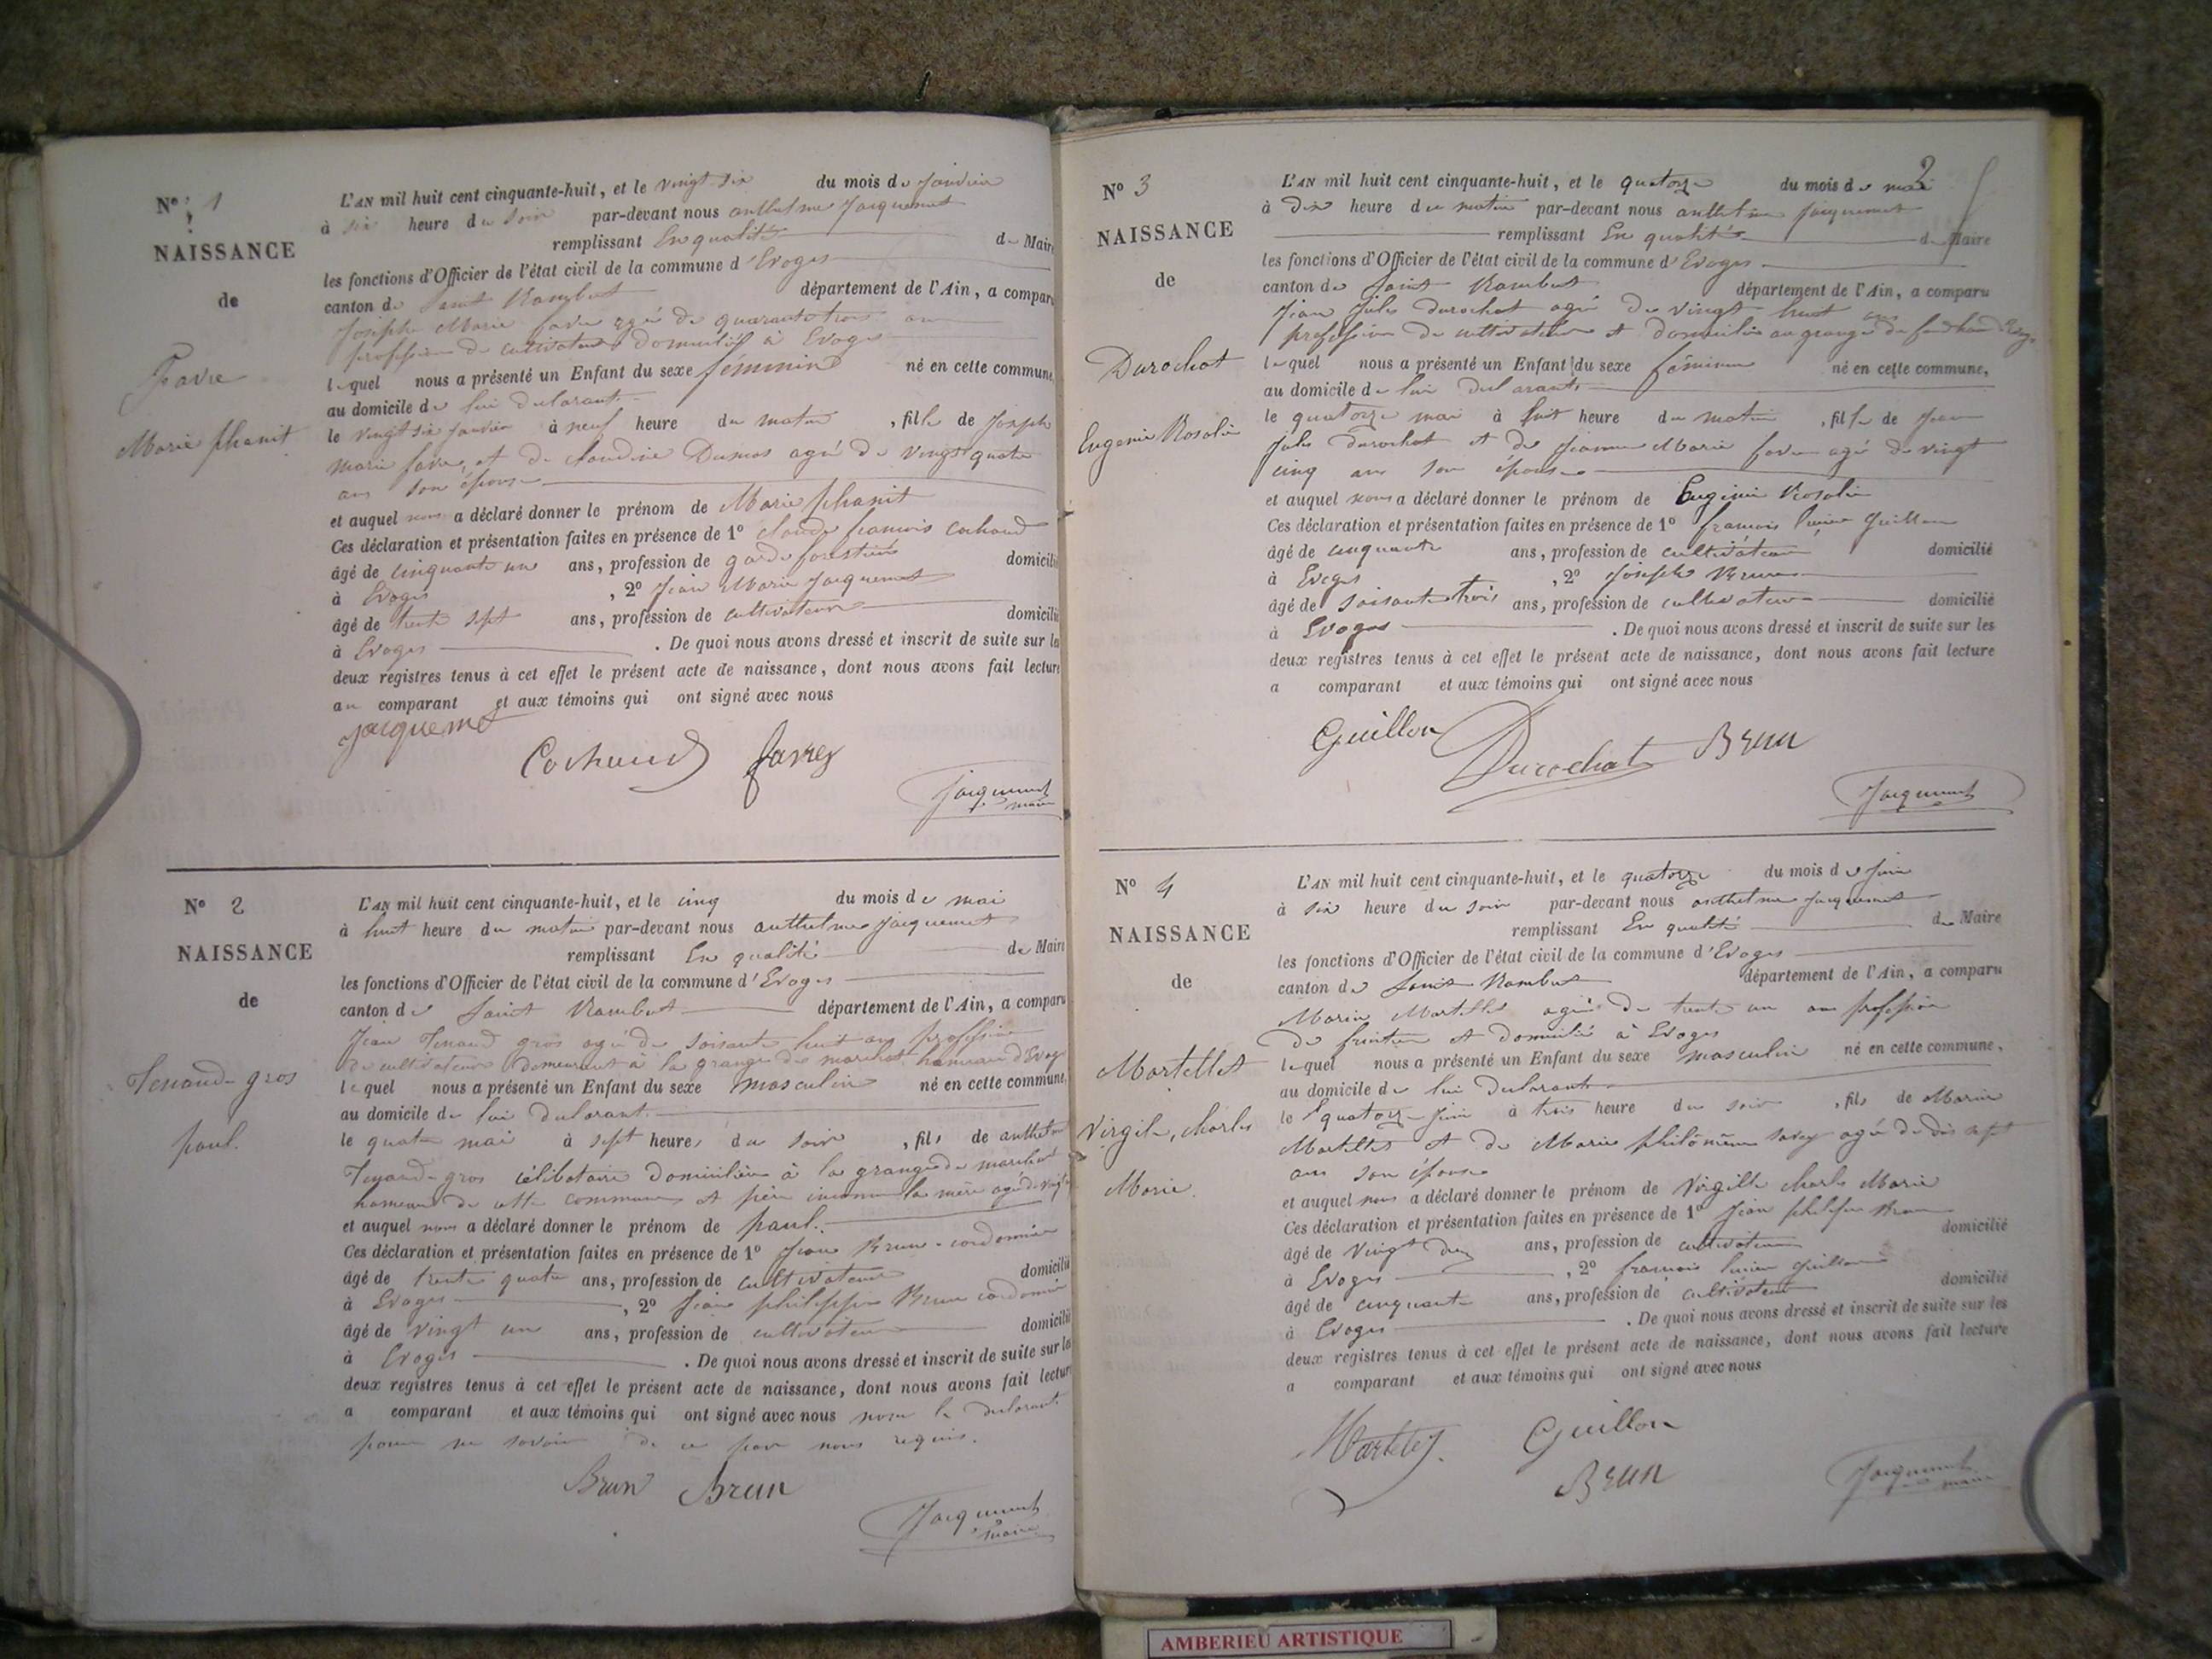 N° 1
NAISSANCE
de
Favre
Marie phanit
L'AN mil huit cent cinquante-huit, et le vingt six du mois de Janvier
à six heure du soir par-devant nous anthelme Jacquemet
remplissant En qualité de Maire
les fonctions d'Officier de l'état civil de la commune d'Evoges
canton de Saint Rambert département de l'Ain, a comparu
Joseph Marie favre agé de quarante trois ans
profession de cultivateur domicilié à Evoges
lequel nous a présenté un Enfant du sexe féminin né en cette commune,
au domicile de lui declarant
le vingt six Janvier à neuf heure du matin, fille de Joseph
marie favre, et de claudine Dumas agé de vingt quatre
ans son épouse
et auquel nous a déclaré donner le prénom de Marie phanit
Ces déclaration et présentation faites en présence de 1° claude francois cochaud
âgé de cinquante un ans, profession de garde forestier domicilié
à Evoges, 2° Jean Marie Jacquemet
âgé de trente sept ans, profession de cultivateur domicilié
à Evoges. De quoi nous avons dressé et inscrit de suite sur les
deux registres tenus à cet effet le présent acte de naissance, dont nous avons fait lecture
au comparant et aux témoins qui ont signé avec nous
Jacquemet
Cochaud favre
Jacquemet maire
N° 2
NAISSANCE
de
Tenand-gros
paul.
L'AN mil huit cent cinquante-huit, et le cinq du mois de mai
à huit heure du matin par-devant nous anthelme Jacquemet
remplissant En qualité de Maire
les fonctions d'Officier de l'état civil de la commune d'Evoges
canton de Saint Rambert département de l'Ain, a comparu
Jean Tenand gros agé de soisante huit ans profession
de cultivateur demeurant à la grange du marchat hameau d'Evoges
lequel nous a présenté un Enfant du sexe masculin né en cette commune,
au domicile de lui declarant.
le quatre mai à sept heures du soir, fils de
Tenand-gros célibataire domiciliée à la grange du marchat
hameau de cette commune et père inconnu la mère agé de vingt
et auquel nous a déclaré donner le prénom de paul.
Ces déclaration et présentation faites en présence de 1° Jean Brun-cordonnier
âgé de trente quatre ans, profession de cultivateur domicilié
à Evoges, 2° Jean philippe Brun cordonnier
âgé de vingt un ans, profession de cultivateur domicilié
à Evoges. De quoi nous avons dressé et inscrit de suite sur les
deux registres tenus à cet effet le présent acte de naissance, dont nous avons fait lecture
a comparant et aux témoins qui ont signé avec nous non le declarant
pour ne savoir de ce par nous requis.
Brun Brun
Jacquemet maire
2
N° 3
NAISSANCE
de
Durochat
Eugenie Rosalie
L'AN mil huit cent cinquante-huit, et le quatorze du mois de mai
à Dix heure du matin par-devant nous anthelme Jacquemet
remplissant En qualité de Maire
les fonctions d'Officier de l'état civil de la commune d'Evoges
canton de Saint Rambert département de l'Ain, a comparu
Jean Jules durochat agé de vingt huit ans
profession de cultivateur et domicilié au grange du
lequel nous a présenté un Enfant du sexe féminin né en cette commune,
au domicile de lui declarant
le quatorze mai à huit heure du matin, fille de Jean
Jules durochat et de Jeanne Marie favre agé de vingt
cinq ans son épouse
et auquel nous a déclaré donner le prénom de Eugenie Rosalie
Ces déclaration et présentation faites en présence de 1° francois lucien Guillon
âgé de cinquante ans, profession de cultivateur domicilié
à Evoges, 2° Joseph Brun
âgé de soisante trois ans, profession de cultivateur domicilié
à Evoges. De quoi nous avons dressé et inscrit de suite sur les
deux registres tenus à cet effet le présent acte de naissance, dont nous avons fait lecture
a comparant et aux témoins qui ont signé avec nous
Guillon Durochat Brun
Jacquemet
N° 4
NAISSANCE
de
Martellet
Virgile, charles
Marie.
L'AN mil huit cent cinquante-huit, et le quatorze du mois de Juin
à six heure du soir par-devant nous anthelme Jacquemet
remplissant En qualité de Maire
les fonctions d'Officier de l'état civil de la commune d'Evoges
canton de Saint Rambert département de l'Ain, a comparu
Marin Martellet agé de trente un ans profession
de fruitier et domicilié à Evoges
lequel nous a présenté un Enfant du sexe masculin né en cette commune,
au domicile de lui declarant
le quatorze Juin à trois heure du soir, fils de Marin
Martellet et de Marie philomène savey agé de dix sept
ans son épouse
et auquel nous a déclaré donner le prénom de Virgille charles Marie
Ces déclaration et présentation faites en présence de 1° Jean philippe Brun
âgé de vingt deux ans, profession de cultivateur domicilié
à Evoges, 2° francois lucien Guillon
âgé de cinquante ans, profession de cultivateur domicilié
à Evoges. De quoi nous avons dressé et inscrit de suite sur les
deux registres tenus à cet effet le présent acte de naissance, dont nous avons fait lecture
a comparant et aux témoins qui ont signé avec nous
Martelet Guillon
Brun
Jacquemet maire
AMBERIEU ARTISTIQUE